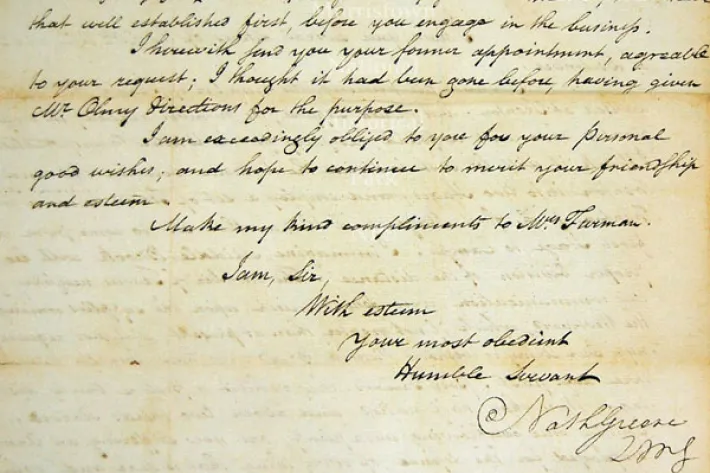 that well established first, before you engage in the business.
I herewith send you your former appointment, agreeable
to your request; I thought it had been gone before, having given
Mr. Olney directions for the purpose.
I am exceedingly obliged to you for your Personal
good wishes; and hope to continue to merit your friendship
and esteem
Make my kind compliments to Mrs Furman.
I am, Sir,
With esteem
Your most obedient
Humble Servant
Nath Greene
QMG